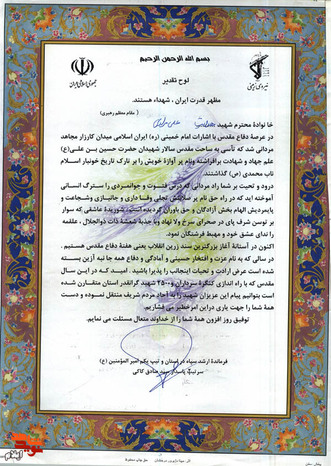 بسم الله الرحمن الرحیم
جمهوری اسلامی ایران
لوح تقدیر
مظهر قدرت ایران ، شهداء هستند.
(مقام معظم رهبری)
خانوادهٔ محترم شهید
در عرصهٔ دفاع مقدس با اشارات امام خمینی (ره) ایران اسلامی میدان کارزار مجاهد
مردانی شد که با تأسی به ساحت مقدس سالار شهیدان حضرت حسین بن علی(ع)
علم جهاد و شهادت برافراشته و نام پر آوازهٔ خویش را بر تارک تاریخ خونبار اسلام
ناب محمدی (ص) گذاشتند.
درود و تحیت بر شما راد مردانی که درس فتوت و جوانمردی را سترگ انسانی
آموخته اید که در راه حق نام پر تجلی وفا داری و جانبازی و شجاعت و
پایمردیش الهام بخش آزادگان و حق باوران گردیده است، شوریدهٔ عاشقی که سوار
بر توسن شرف پای در صراح سرخ ولا نهاد و با جذبهٔ شعشهٔ ذات ذوالجلال ، علقمه
را ندای عشق خود و مهبط فرشتگان نمود.
اکنون در آستانهٔ آغاز بزرگترین سند زرین انقلاب یعنی هفتهٔ دفاع مقدس هستیم .
در سالی که به نام عزت و افتخار حسینی و آمادگی و دفاع همه جانبه آزین بسته
شده است عرض ارادت و تحیات اینجانب را پذیرا باشید. امید که در این سال
مقدس که با راه اندازی کنگرهٔ سرداران و ۲۵۰۰ شهید گرانقدر استان متقارن شده
است بتوانیم پیام این عزیزان شهید را به آحاد مردم شریف منتقل نموده و دست
همهٔ شما را جهت یاری در این امر خطیر می فشاریم.
توفیق روز افزون همهٔ شما را از خداوند متعال مسئلت می نمایم.
فرماندهٔ ارشد سپاه در استان و تیپ یکم امیر المؤمنین (ع)
سرتیپ پاسدار سید هادی کاکی